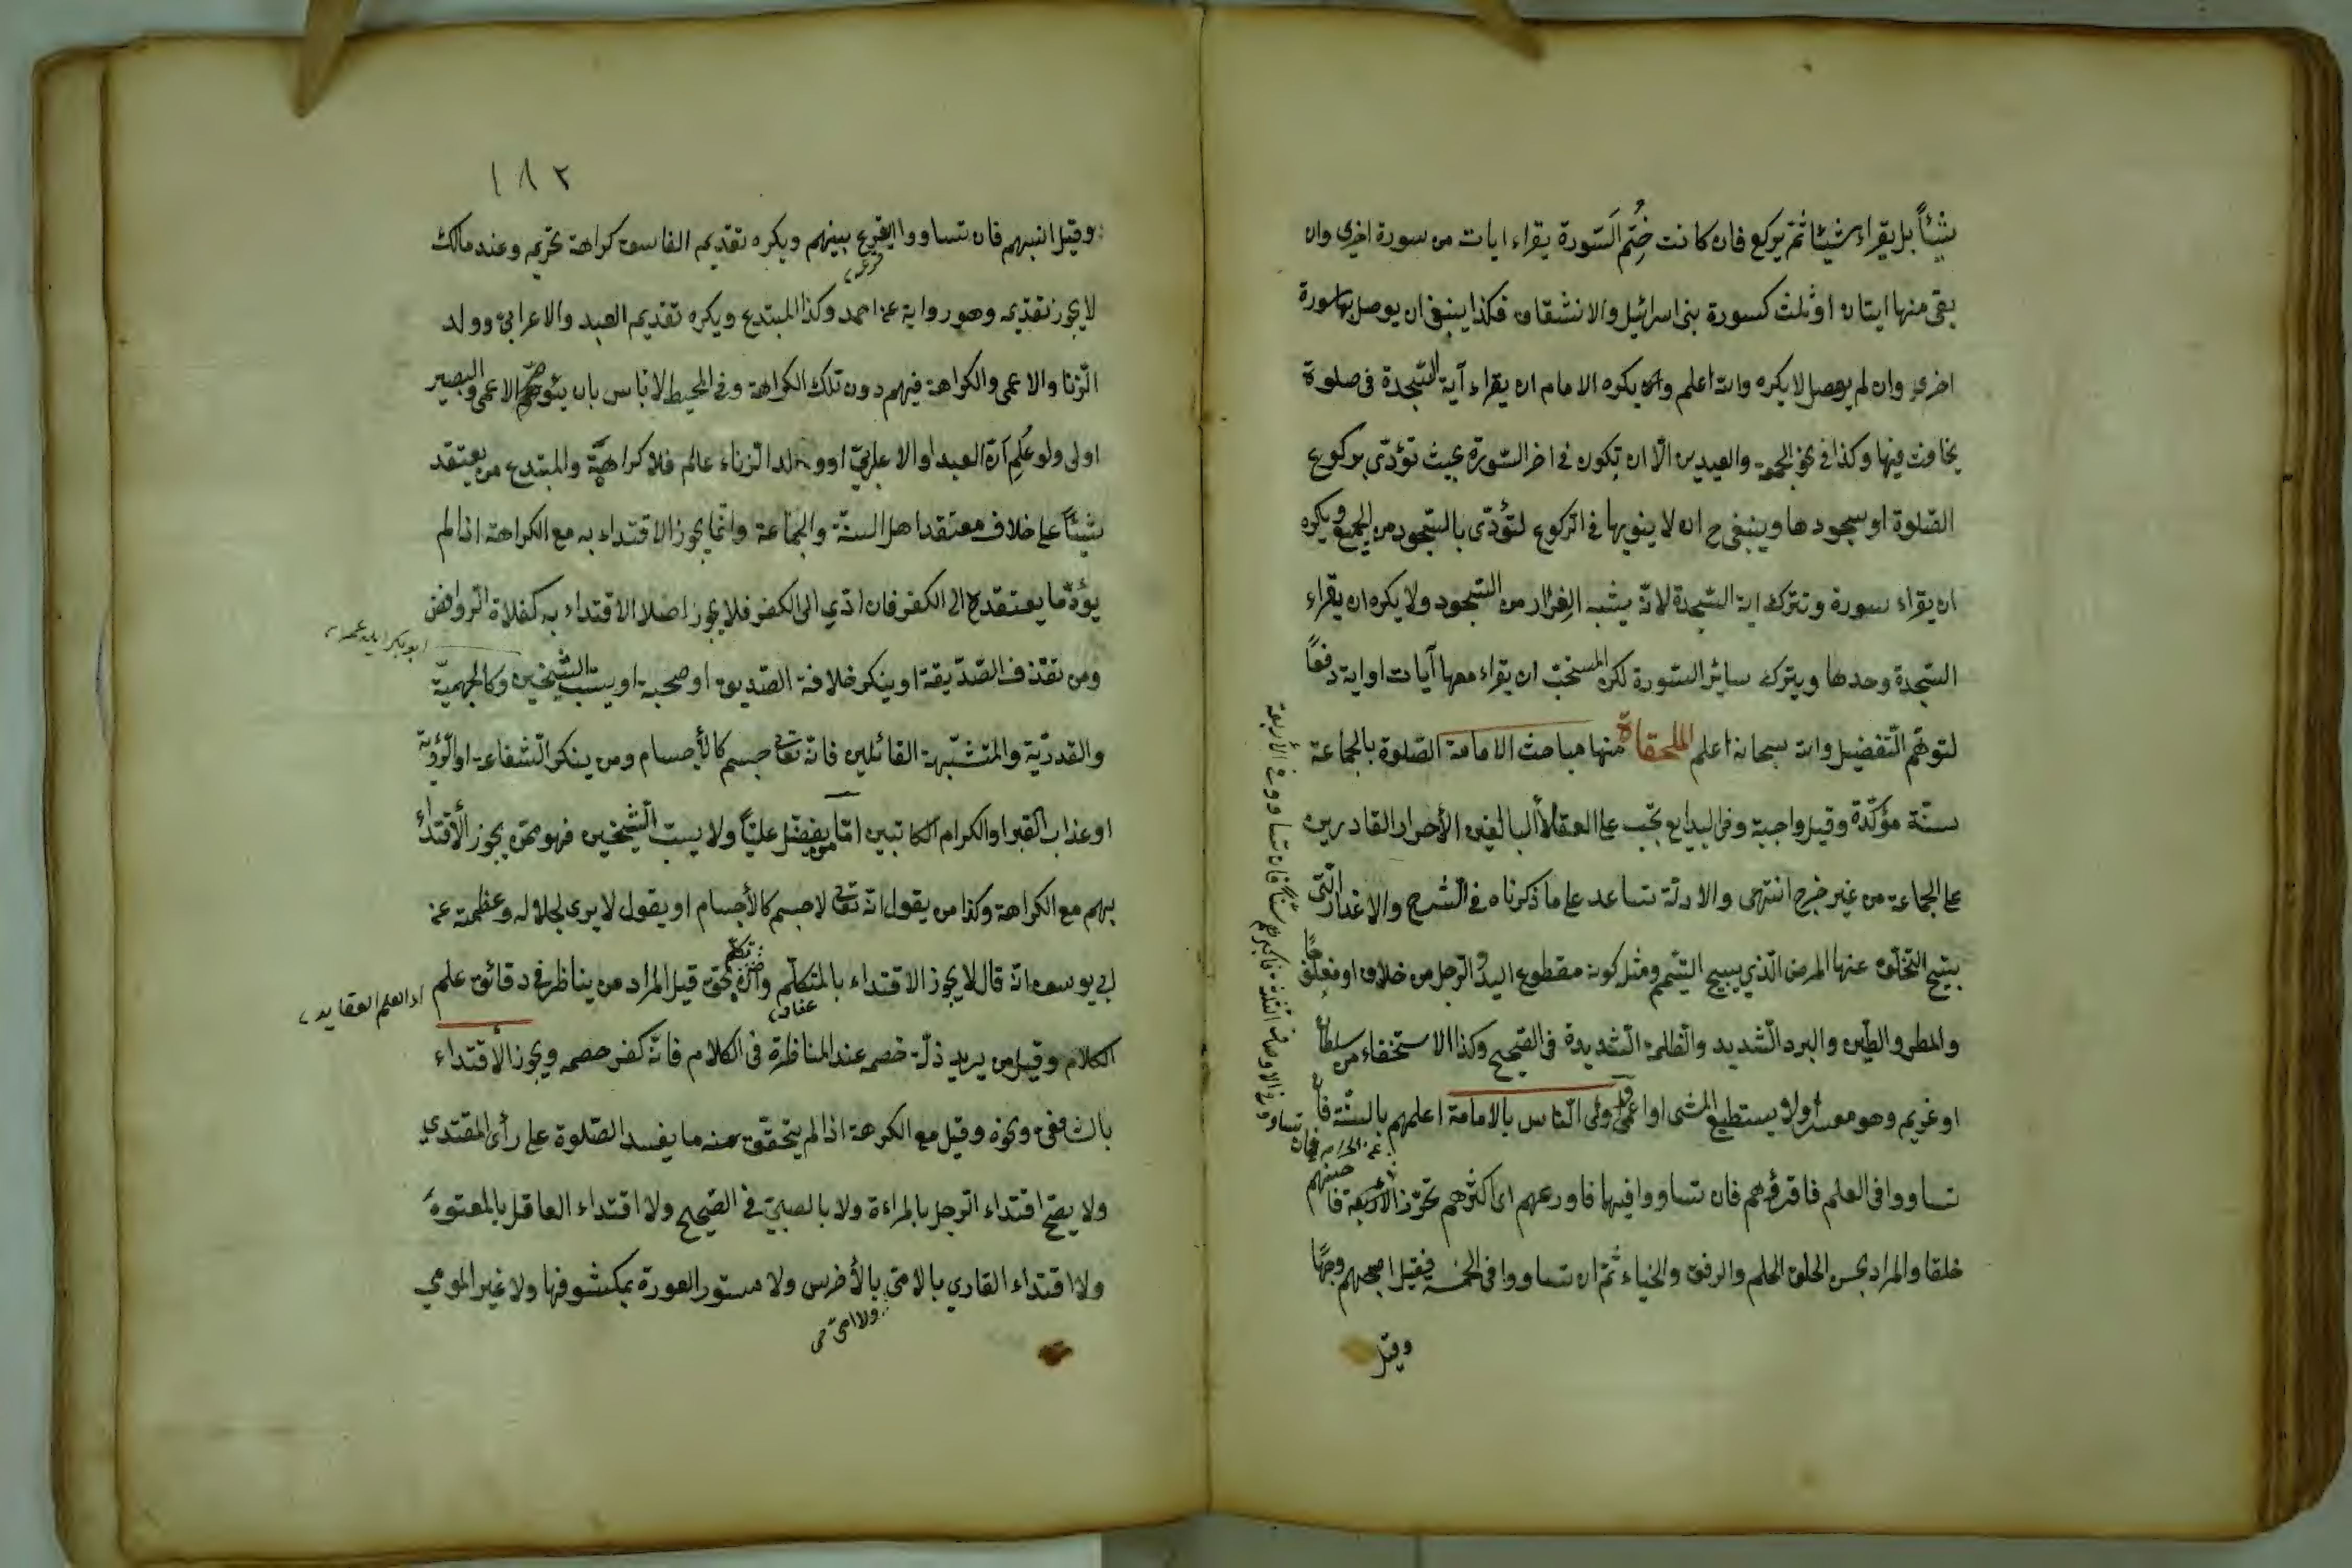 شيئاً بل يقراء شيئا ثم يركع فان كانت ختم السّورة يقراء ايات من سورة اخرى وان
بقى منها ايتان او ثلث كسورة بنى اسرائيل والانشقاق فكذا ينبغى ان يوصل بها سورة
اخرى وان لم يوصل لا يكره والله اعلم ويكره الامام ان يقراء آية السّجدة فى صلوة
يخافت فيها وكذا فى نحو الجمعة والعيدين الّا ان تكون فى اخر السّورة بحيث تؤدّى بركوع
الصّلوة او سجودها وينبغى ح ان لا ينويها فى الركوع لتؤدّى بالسّجود من الجميع ويكره
ان يقراء سورة وتترك اية السّجدة لانّه يشبه الفرار من السّجود ولا يكره ان يقراء
السّجدة وحدها ويترك سائر السّورة لكن المستحبّ ان يقراء معها آيات او اية دفعاً
لتوهّم التّفضيل والله سبحانه اعلم الملحقاة منها مباحث الامامة الصّلوة بالجماعة
سنّة مؤكّدة وقيل واجبة وفى البدايع تجب على العقلاء البالغين الأحرار القادرين
على الجماعة من غير حرج انتهى والادلّة تساعد على ما ذكرناه فى الشّرح والاعذار التى
يبيح التخلّف عنها المرض الّذي يبيح التيمّم ومثل كونه مقطوع اليد والرّجل من خلاف او مفلوجاً
والمطر والطّين والبرد الشّديد والظّلمة الشّديدة فى الصّحيح وكذا الاستخفاء من سلطان
او غريم وهو معسر او لا يستطيع المشى او اعمى واولى النّاس بالامامة اعلمهم بالسنّة فان
تساووا فى العلم فاقرؤهم فان تساووا فيها فاورعهم اى اكثرهم تحرّزا
خلقا والمراد بحسن الخلق الحلم والرفق والحياء ثمّ ان تساووا فى الخمسة فقيل اصبحهم وجهًا
وقيل
١٨٢
وقيل انسبهم فان تساووا ايقرع بينهم ويكره تقديم الفاسق كراهة تحريم وعند مالك
لا يجوز تقديمه وهو رواية عن احمد وكذا المبتدع ويكره تقديم العبد والاعرابىّ وولد
الزّنا والاعمى والكراهة فيهم دون تلك الكراهة وفى المحيط لا باس بان يئوم الاعمى والبصير
اولى ولو عُلِم انّ العبد او الاعرابىّ او ولد الزّناء عالم فلا كراهة والمبتدع من يعتقد
شيئاً على خلاف معتقد اهل السنّة والجماعة وانّما يجوز الاقتداء به مع الكراهة اذا لم
يؤدّ ما يعتقده الى الكفر فان ادّي الى الكفر فلا يجوز اصلا الاقتداء به كغلاة الرّوافض
ابو بكر
ومن يقذف الصّدّيقة او ينكر خلافة الصّديق او صحبة او يسبّ الشّيخين وكالجهميّة
والقدريّة والمتشبّهة القائلين فانّه تعالى جسم كالأجسام ومن ينكر الشّفاعة او الرّؤية
او عذاب القبر او الكرام الكاتبين امّا من يفضّل عليّاً ولا يسبّ الشّيخين فهو ممّن يجوز الأقتداء
بهم مع الكراهة وكذا من يقول انّه تعالى لا جسم كالأجسام او يقول لا يرى لجلاله وعظمته عن
ابي يوسف انّه قال لا يجوز الاقتداء بالمتكلّم وان تكلّم بحقّ قيل المراد من يناظر فى دقائق علم
الكلام وقيل من يريد ذلّة خصمه عند المناظرة فى الكلام فانّه كفر خصمه ويجوز الأقتداء
بالشافعى ونحوه وقيل مع الكرهة اذا لم يتحقّق منه ما يفسد الصّلوة على رأى المقتدي
ولا يصحّ اقتداء الرّجل بالمراءة ولا بالصبىّ فى الصّحيح ولا اقتداء العاقل بالمعتوه
ولا اقتداء القاري بالامىّ بالأخرس ولا مستور العورة بمكشوفها ولا غير المومي
ولا امىّ